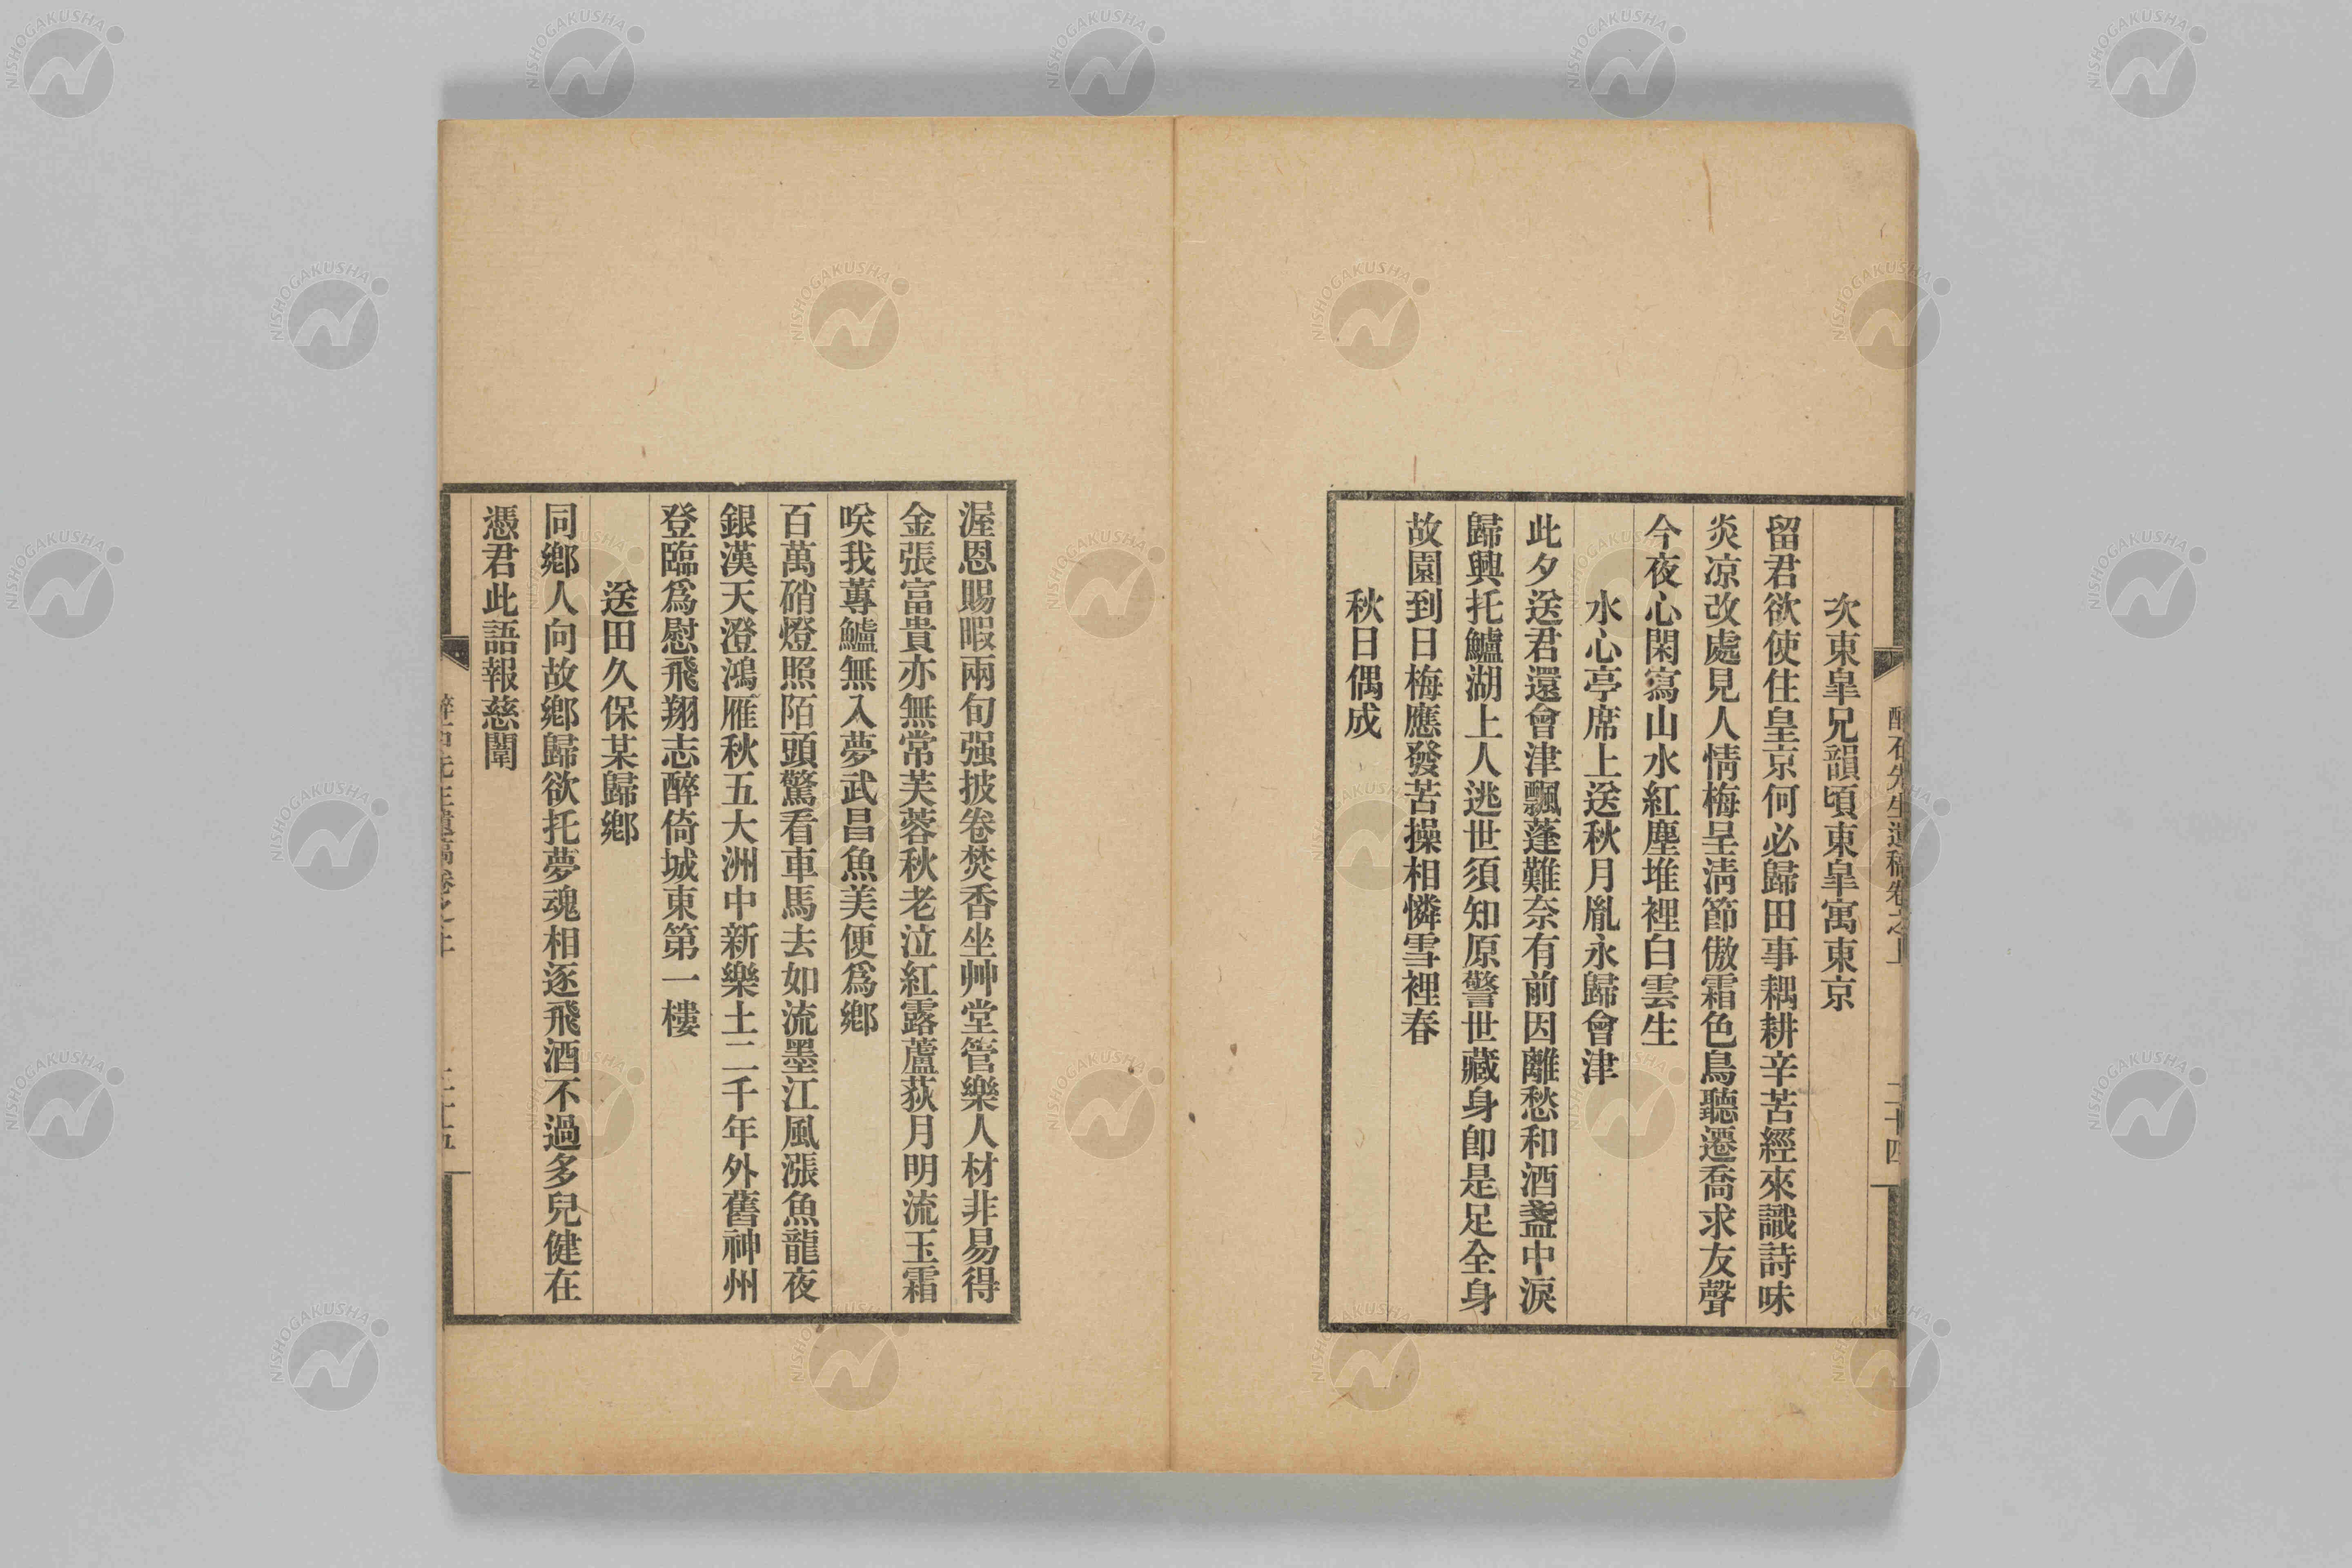 醉石先生遺稿卷之上　二十四
次東皐兄韻頃東皐寓東京
留君欲使住皇京何必歸田事耦耕辛苦經來識詩味
炎凉改處見人情梅呈淸節傲霜色鳥聽遷喬求友聲
今夜心閑寫山水紅塵堆裡白雲生
水心亭席上送秋月胤永歸會津
此夕送君還會津飄蓬難奈有前因離愁和酒盞中淚
歸興托鱸湖上人逃世須知原警世藏身卽是足全身
故園到日梅應發苦操相憐雪裡春
秋日偶成
渥恩賜暇兩旬强披卷焚香坐艸堂管樂人材非易得
金張富貴亦無常芙蓉秋老泣紅露蘆荻月明流玉霜
咲我蓴鱸無入夢武昌魚美便爲鄕
百萬硝燈照陌頭驚看車馬去如流墨江風漲魚龍夜
銀漢天澄鴻雁秋五大洲中新樂土二千年外舊神州
登臨爲慰飛翔志醉倚城東第一樓
送田久保某歸鄕
同鄕人向故鄕歸欲托夢魂相逐飛酒不過多兒健在
憑君此語報慈闈
NISHOGAKUSHA